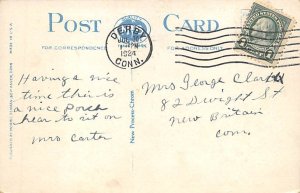 POST CARD
FOR CORRESPONDENCE
FOR ADDRESS ONLY
DERBY
1924
CONN.
Having a nice
time this is
a nice porch
hear to sit on
Mrs Carter
Mrs George Clark
82 Dwight St
New Britain
Conn.